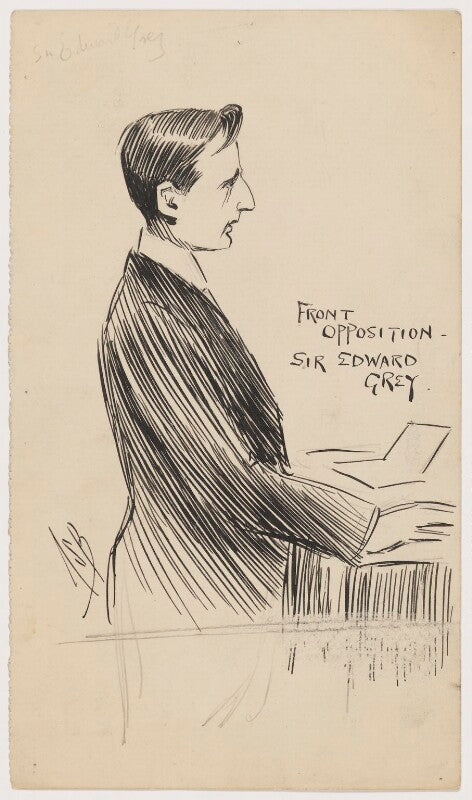 Sir Edward Grey
FRONT
OPPOSITION -
SIR EDWARD
GREY.